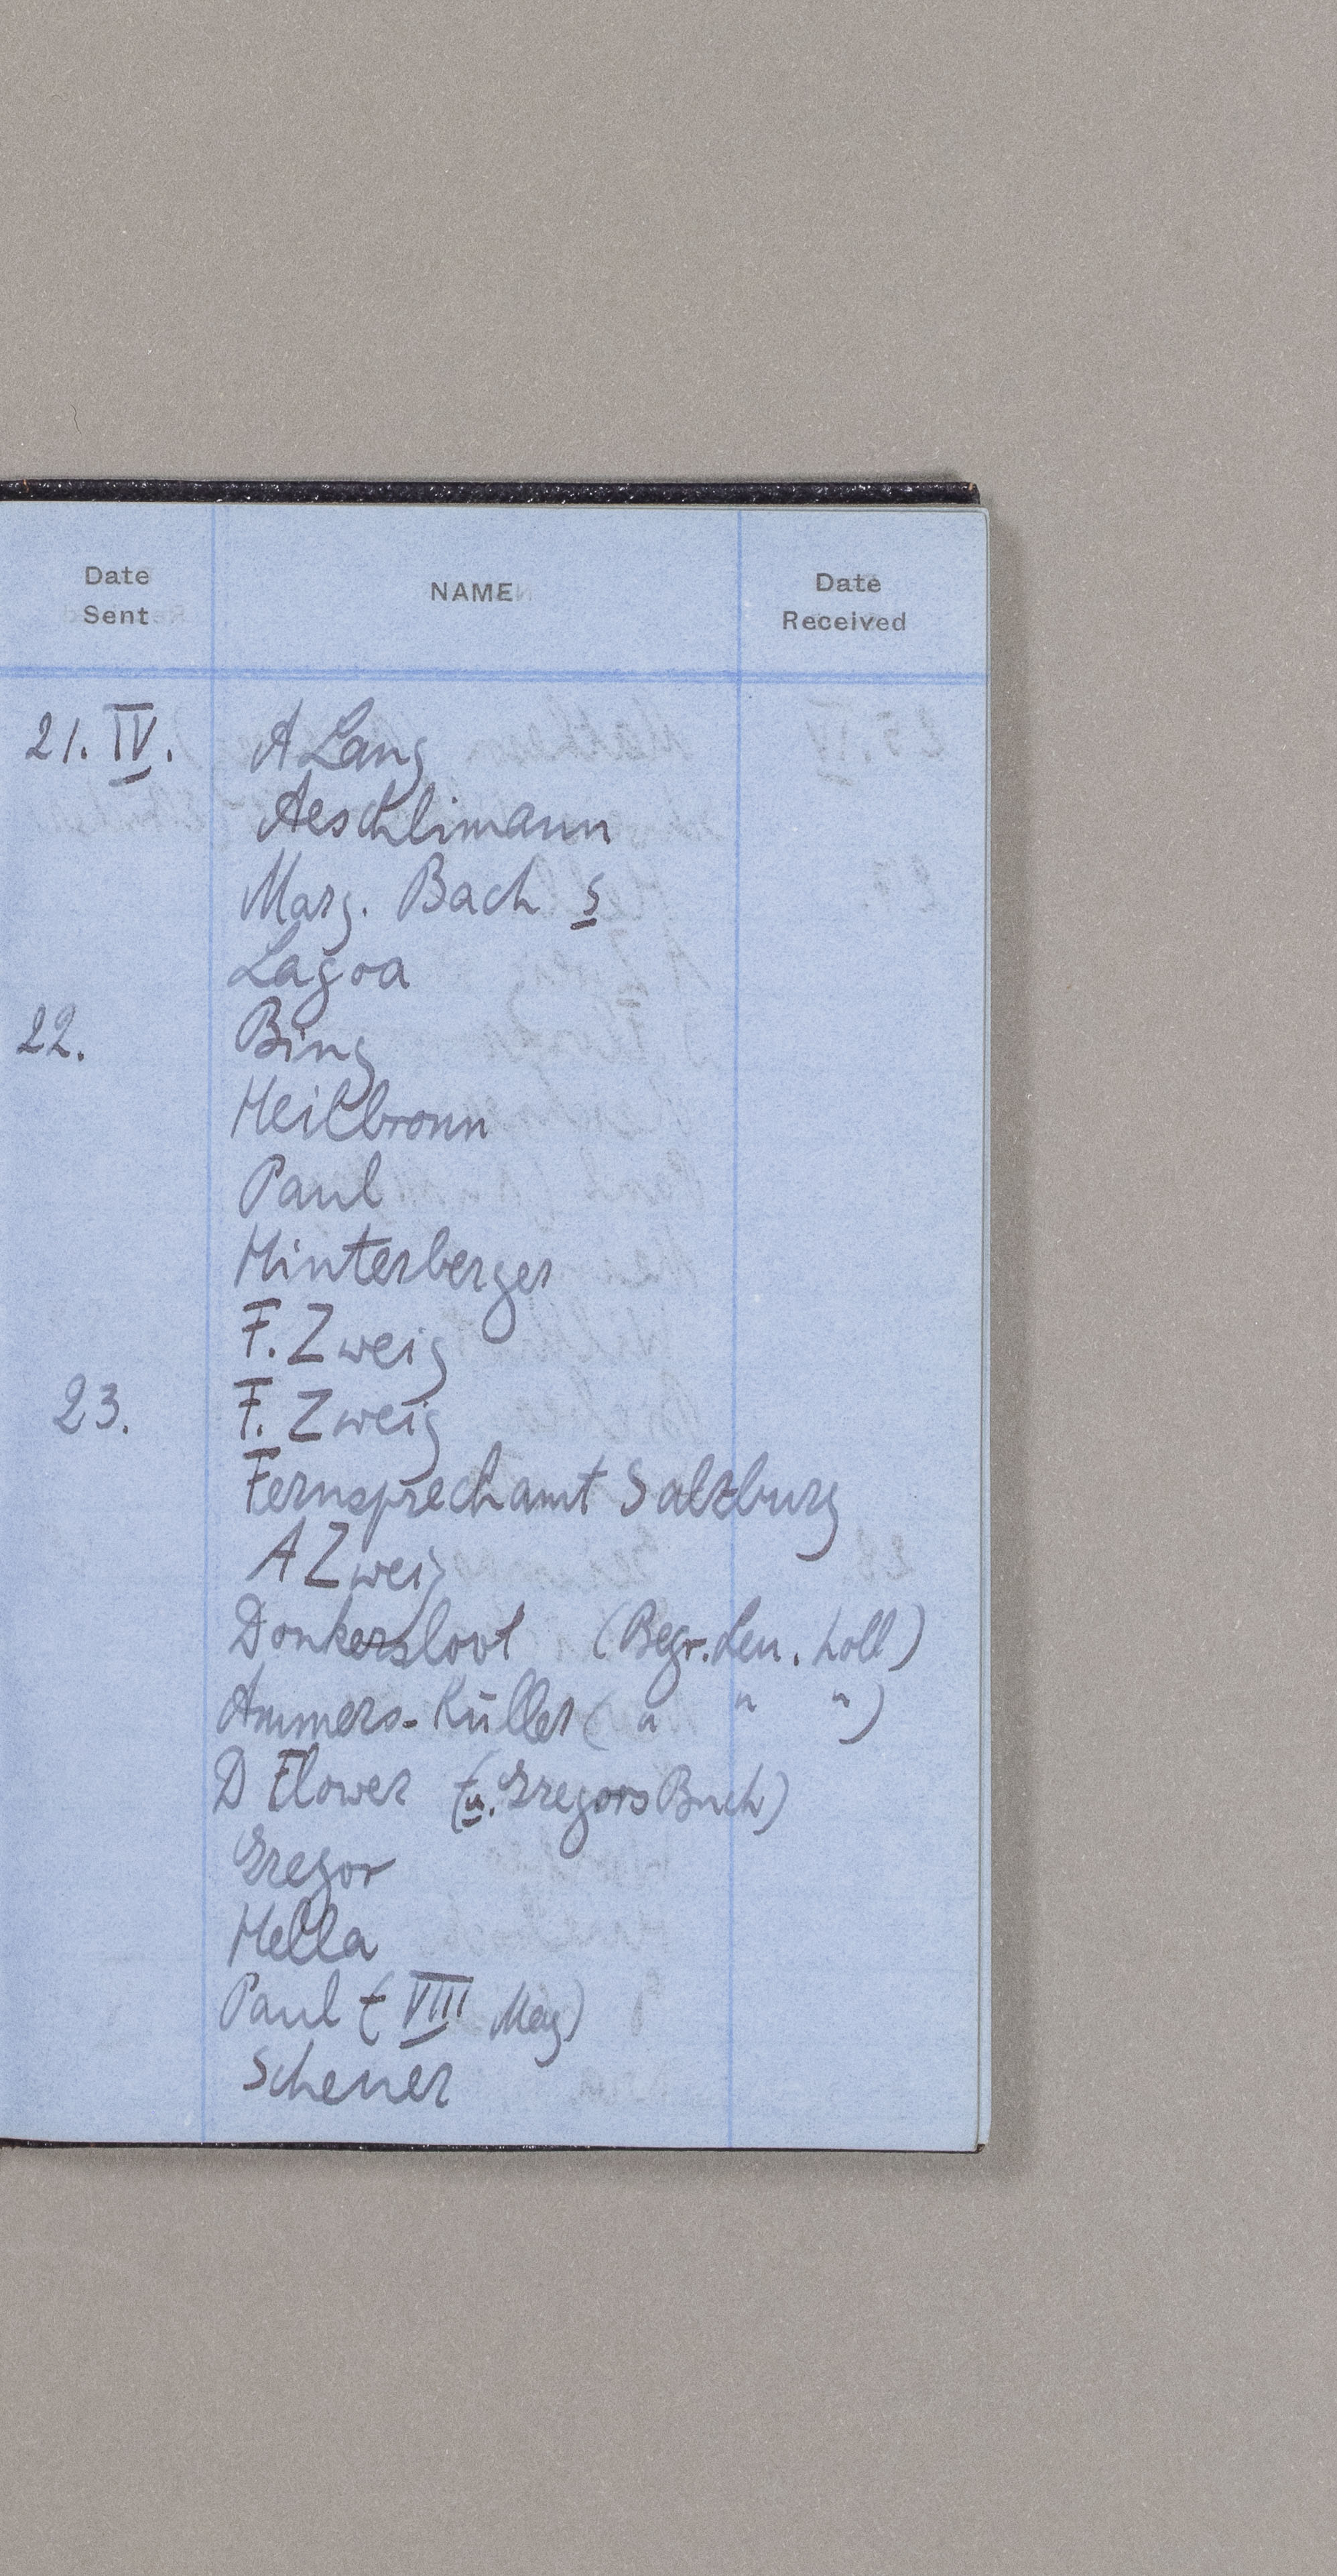 Date Sent NAME Date Received
21. IV. A Lang
Aeschlimann
Marg. Bach S
Lagoa
22. Bing
Heilbronn
Paul
Hinterberger
F. Zweig
23. F. Zweig
Fernsprechamt Salzburg
A Zweig
Donkersloot (Begr. Len. Holl)
Ammers-Küller ( " " " )
D Flower (u. Gregors Buch)
Gregor
Hella
Paul ( VIII May)
Scheuer